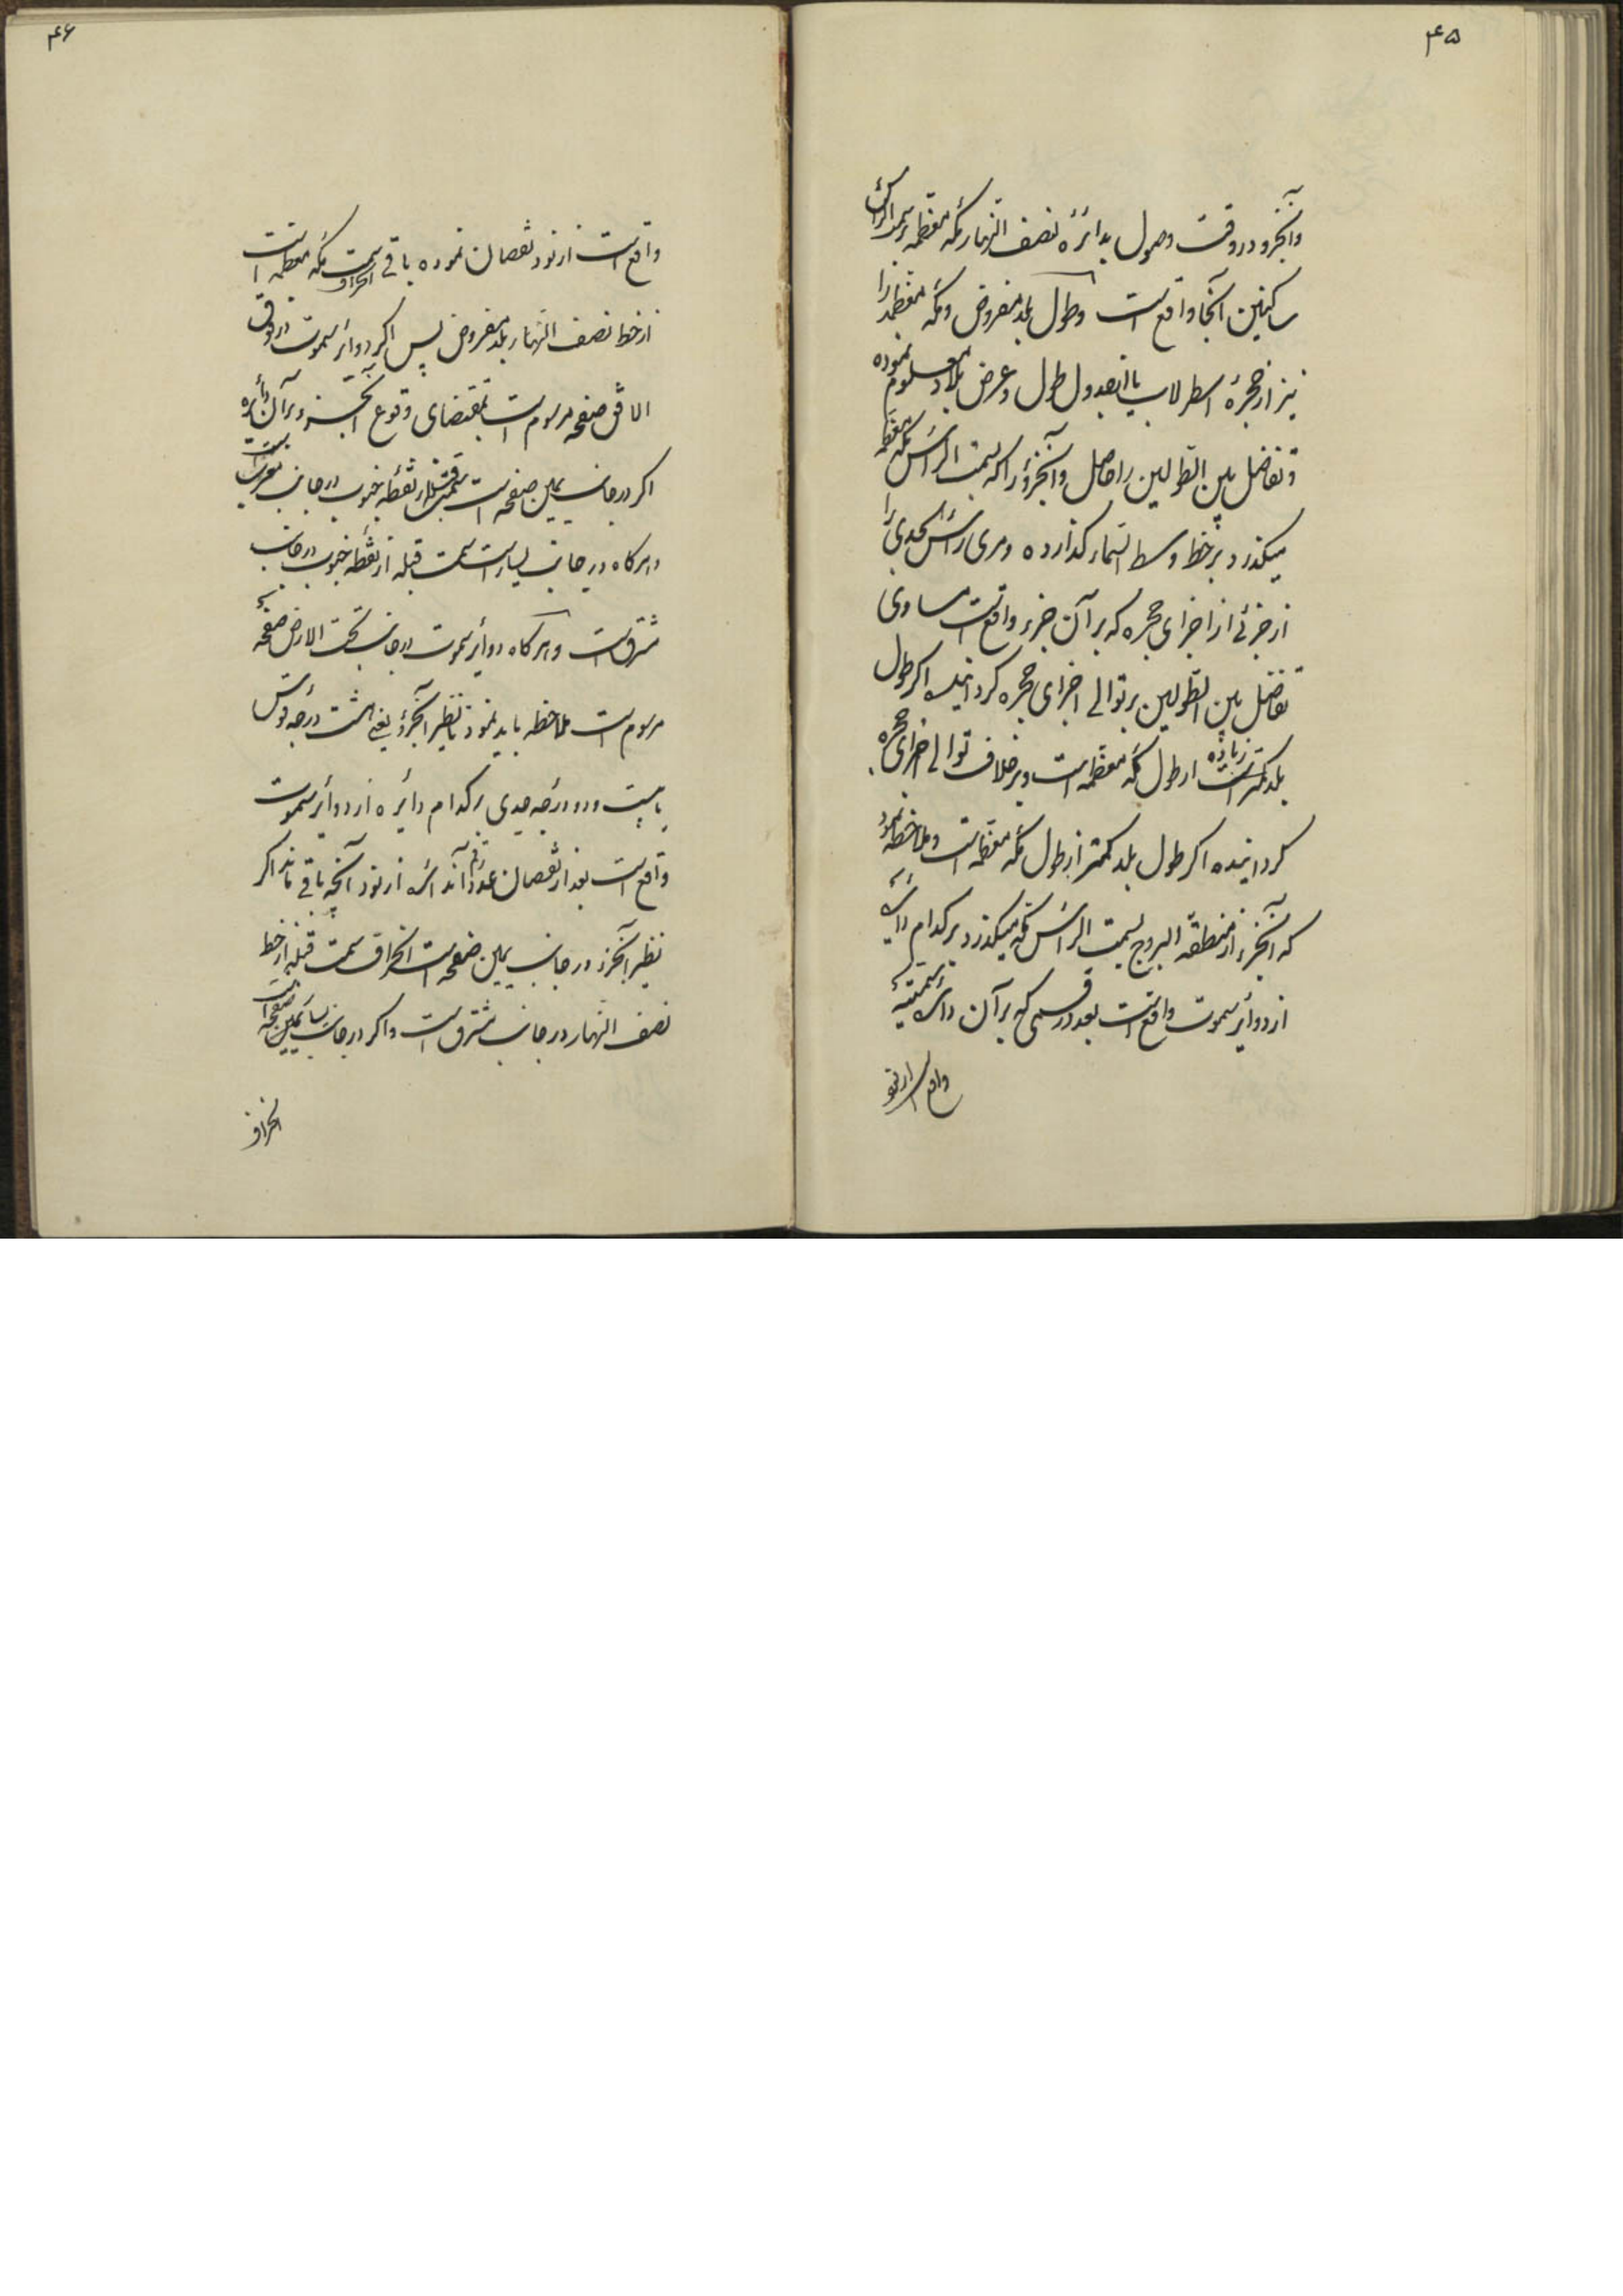 ۴۵
وآنجزو در وقت وصول بدائرۀ نصف النهار مکه معظمه بسمت الراس
ساکنین آنجا واقع است وطول بلد مفروض ومکه معظمه را
نیز از حجرۀ اسطرلاب یا از جدول طول وعرض بلاد معلوم نموده
وتفاضل بین الطولین را حاصل وآنجزؤ را که بسمت الراس مکه معظمه
میگذرد بر خط وسط السماء گذارده ومری راس الجدی را
از جزئی از اجزای حجره که بر آن جزء واقع است مساوی
تفاضل بین الطولین بر توالی اجزای حجره گردانیده اگر طول
بلد زیاده از طول مکه معظمه است وبر خلاف توالی اجزای حجره
گردانیده اگر طول بلد کمتر از طول مکه معظمه است وملاحظه نمود
که آنجزء از منطقه البروج بسمت الراس مکه میگذرد بر کدام دائره
از دوائر سموت واقع است بعد در قسمی که بر آن دائرۀ سمتیه
واقع است از نود
۴۶
واقع است از نود نقصان نموده باقی انحراف سمت مکه معظمه است
از خط نصف النهار بلد مفروض پس اگر دوائر سموت در فوق
الافق صفحه مرسوم است بمقتضای وقوع آنجزو بر آن دائره
اگر در جانب یمین صفحه است سمت قبله از نقطۀ جنوب در جانب مغرب است
وهرگاه در جانب یسار است سمت قبله از نقطۀ جنوب در جانب
مشرق است وهرگاه دوائر سموت در جانب تحت الارض صفحۀ
مرسوم است ملاحظه باید نمود تا نظیر آنجزؤ یعنی هشت درجه قوس
یا بیست ودو درجه جدی بر کدام دائره از دوائر سموت
واقع است بعد از نقصان عدد آن دائره از نود آنچه باقی ماند اگر
نظیر آنجزء در جانب یمین صفحه است انحراف سمت قبله از خط
نصف النهار در جانب مشرق است واگر در جانب یسار صفحه است
انحراف